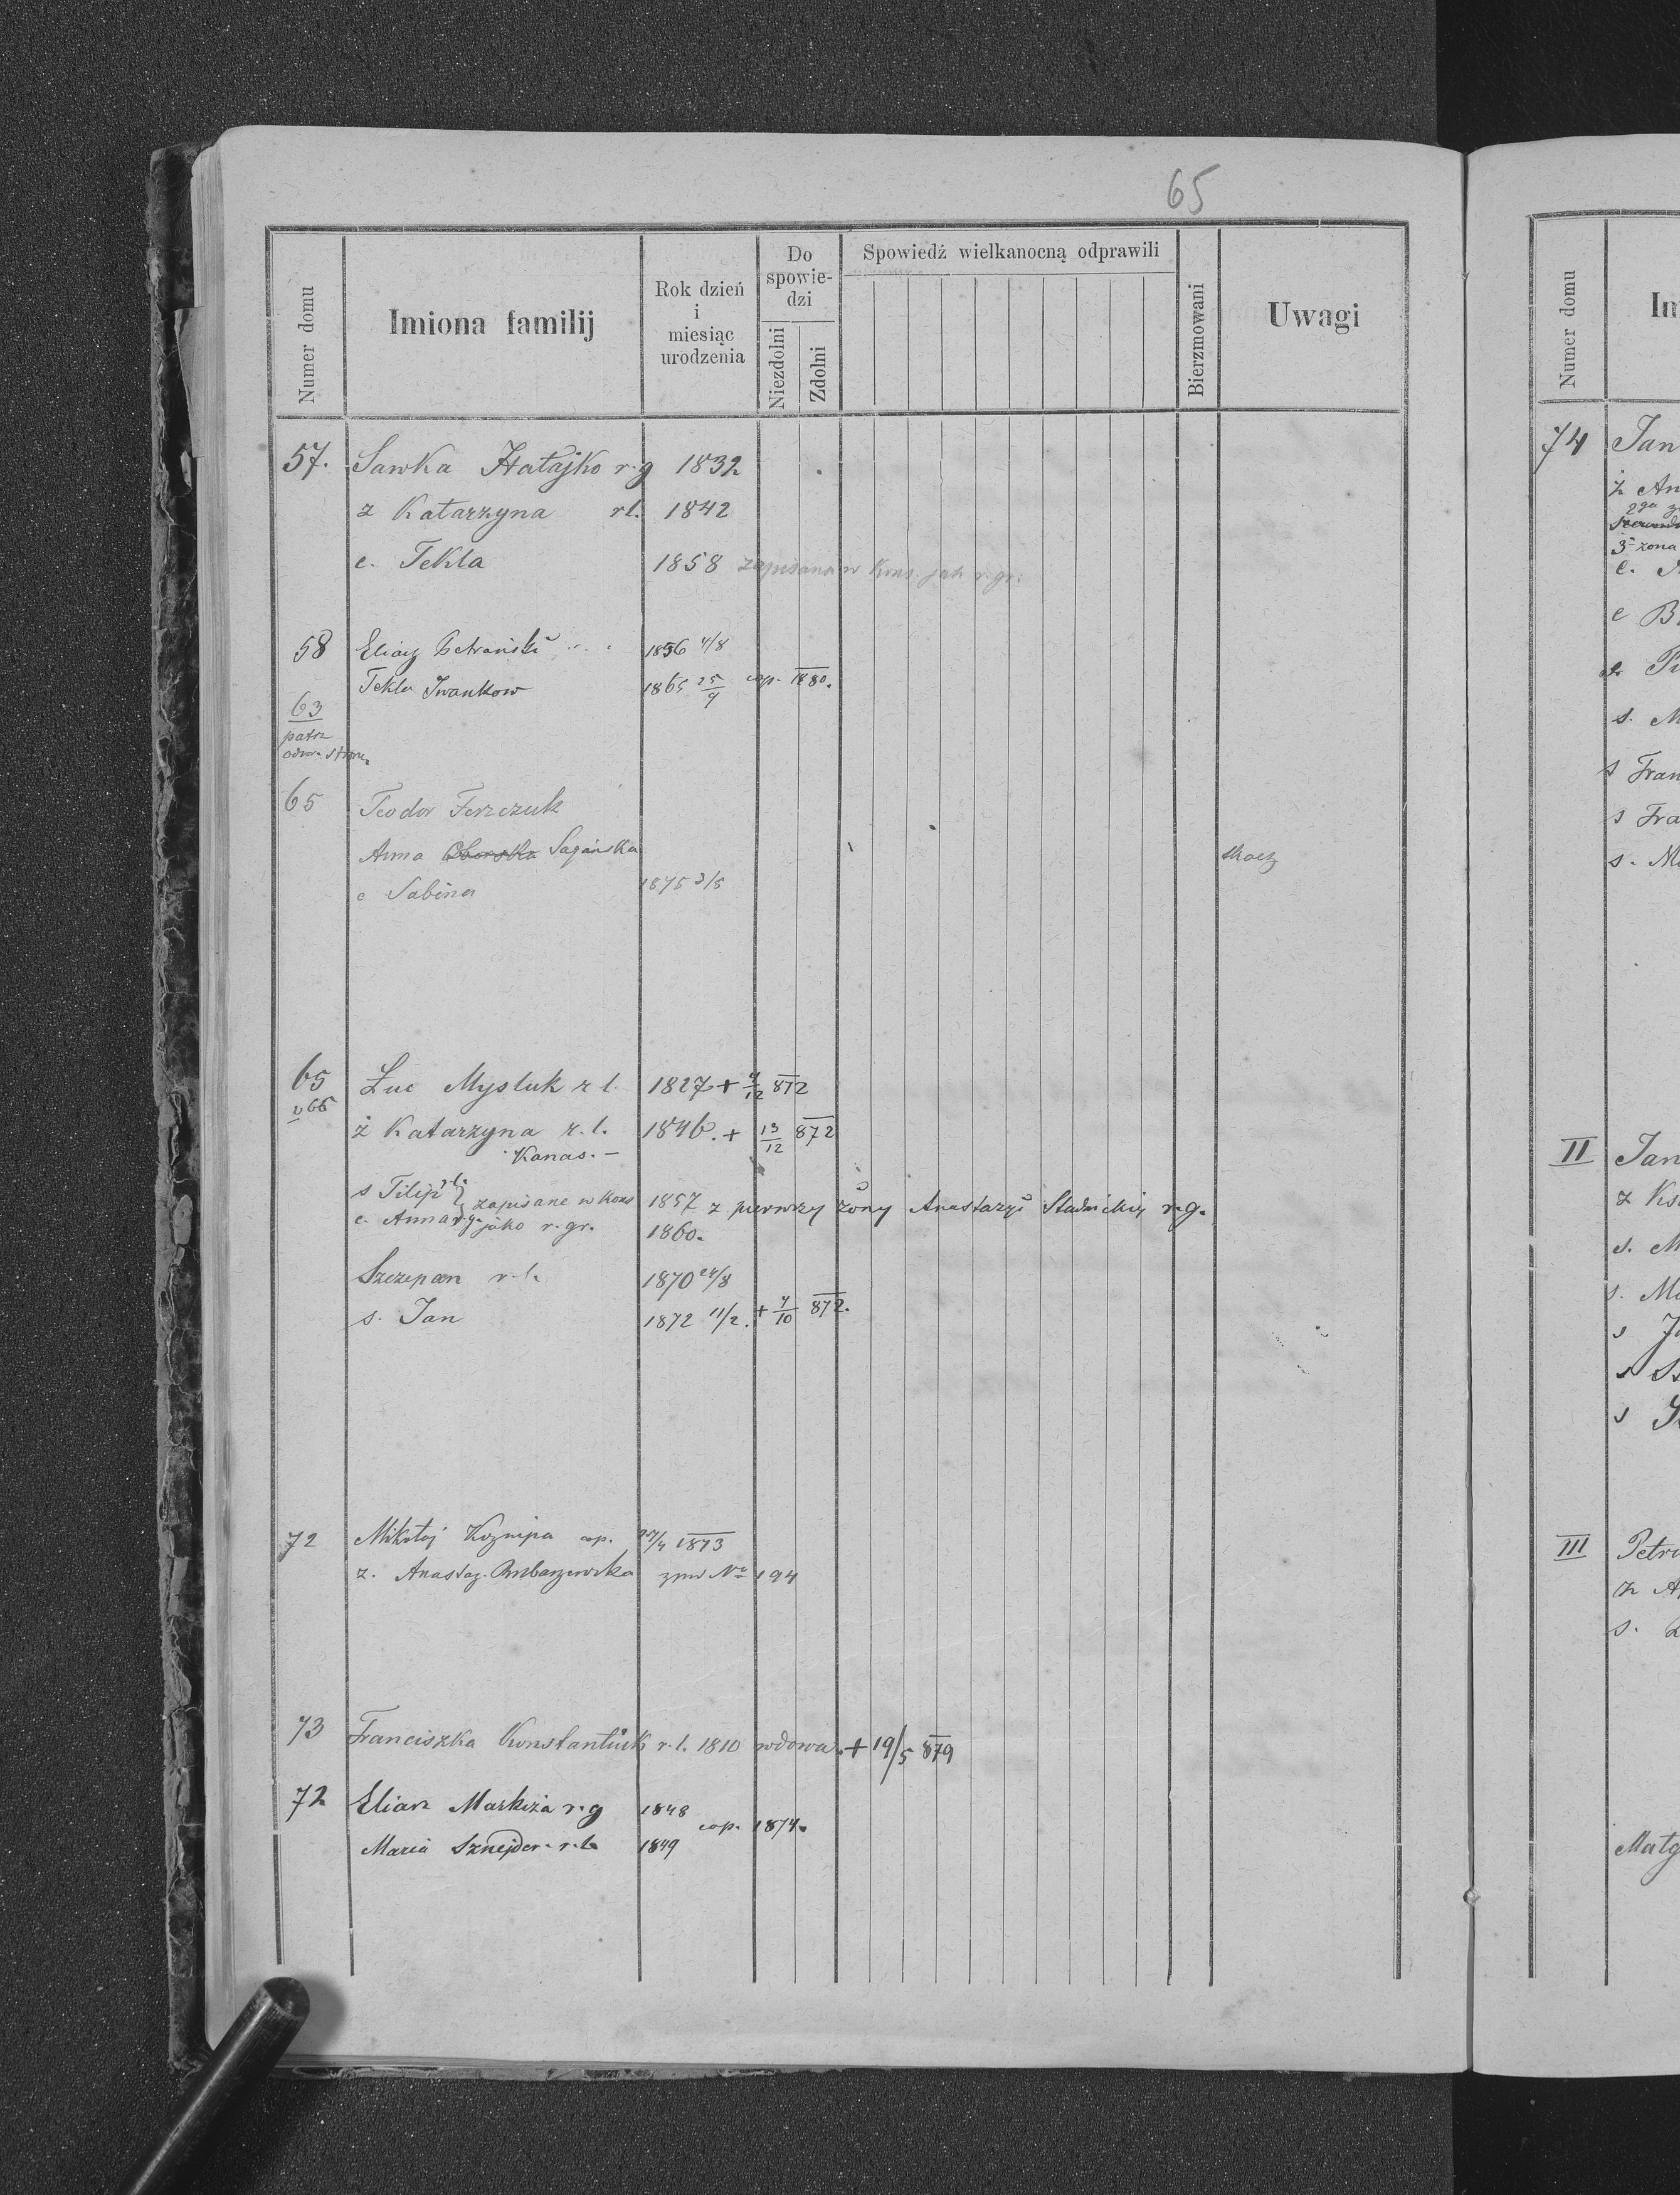 65
Numer domu
Imiona familij
Rok dzień i miesiąc urodzenia
Do spowiedzi
Niezdolni
Zdolni
Spowiedź wielkanocną odprawili
Bierzmowani
Uwagi
57. Sawka Hatajko r. g 1832
z Katarzyna rl. 1842
c. Tekla 1858 zapisana w Kons. jak r. gr.
58 Eliasz Petrański 1856 4/8
Tekla Iwankow 1865 25/9 cop. 1880.
63
patrz
odwr. stronę
65 Teodor Ferczuk
Anna Oborska Sagańska
c Sabina 1875 3/5
65 Łuc Mysluk r l. 1827 + 4/12 872
v 66
ż Katarzyna r. l. 1846. + 13/12 872
Kanas. –
s Filip r l. zapisane w Kons 1857 z pierwszy żony Anastazyi Stadnickiy r. g.
c. Anna r. g. jako r. gr. 1860.
Szczepan r. l. 1870 24/8
s. Jan 1872 11/2. + 7/10 872.
72 Mikołaj cop. 1873
z. Anastaz. No 194
73 Franciszka Konstantiuk r. l. 1810 wdowa. + 19/5 879
72 Eliasz Markiza r. g 1848
cop. 1874.
Maria Sznejder r. l. 1849
Numer domu
74 Jan
3- żona
s. M
s Fran
s Fra
II Jan
III Petr
Matg